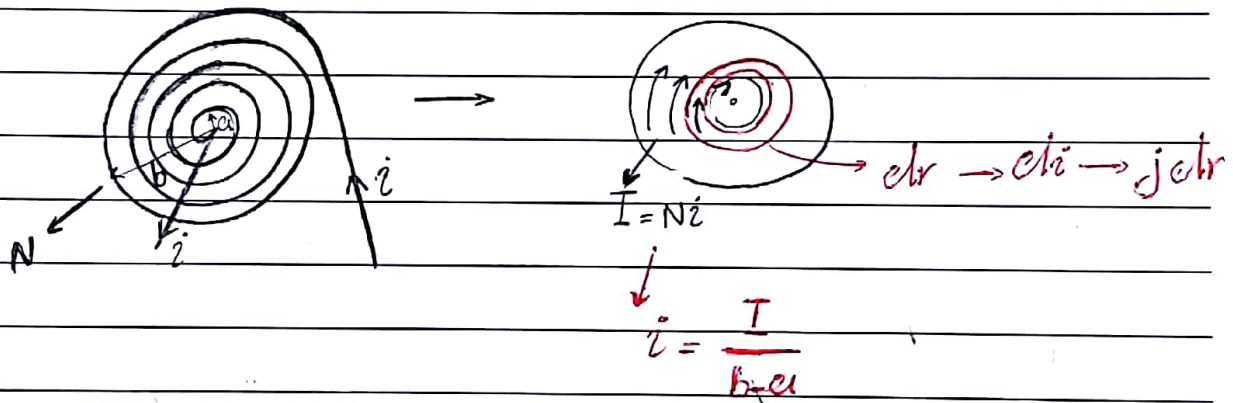 a
b
i
N
i
I = Ni
dr → di → jdr
i = I / b-a